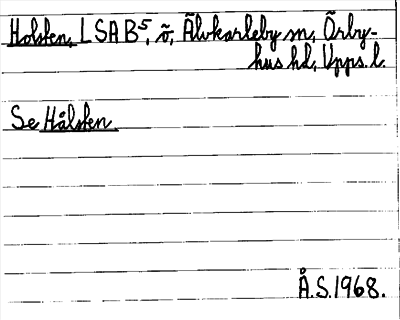 Holsten, LSAB5, ö, Älvkarleby sn, Örby-
hus hd, Upps. l.
Se Hålsten.
Å.S.1968.